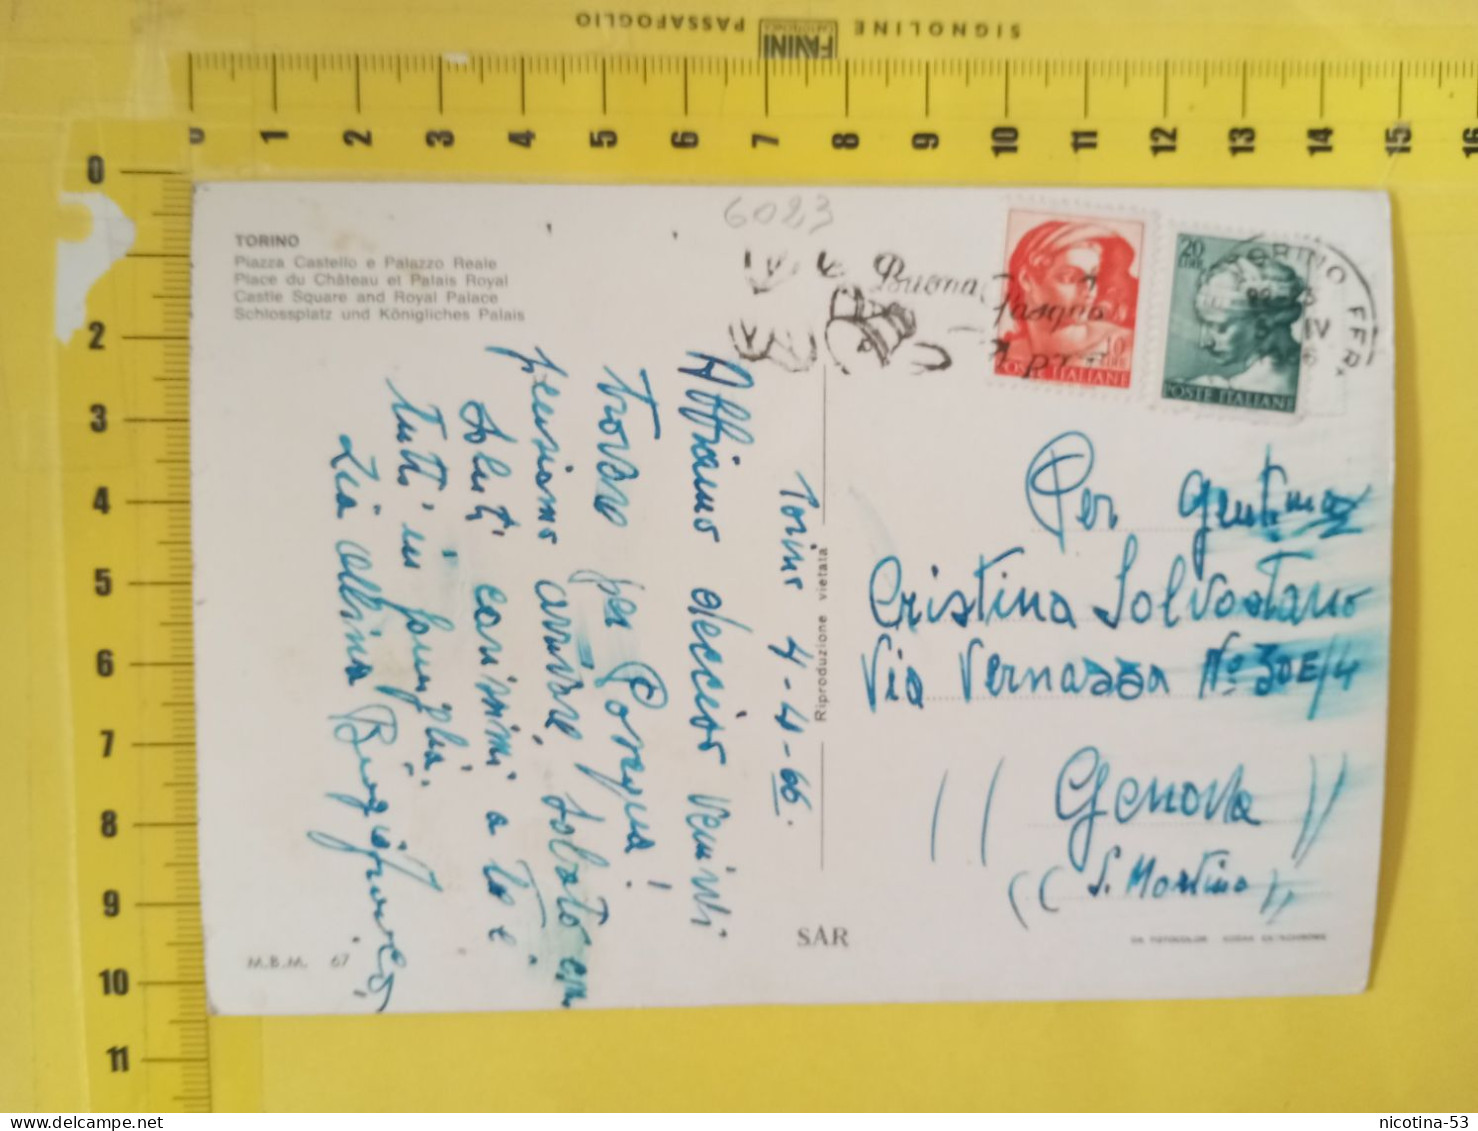 SIGNOLINE FANINI PASSAFOGLIO
0 1 2 3 4 5 6 7 8 9 10 11 12 13 14 15 16
0
2
3
4
5
6
7
8
9
10
11
6023
TORINO
Piazza Castello e Palazzo Reale
Place du Château et Palais Royal
Castle Square and Royal Palace
Schlossplatz und Königliches Palais
Buona
Pasqua
P.T.
10 LIRE
POSTE ITALIANE
20 LIRE
POSTE ITALIANE
TORINO FERR
IV
Torino 4-4-66.
Abbiamo
Trovare per Pasqua!
pensiamo sabato
saluti carissimi a te e
tutti in famiglia.
Zia
Riproduzione vietata
SAR
M.B.M. 67
Per
Cristina Salvostano
Via Vernazza No 30E/4
((Genova))
((S. Martino))
nicotina-53